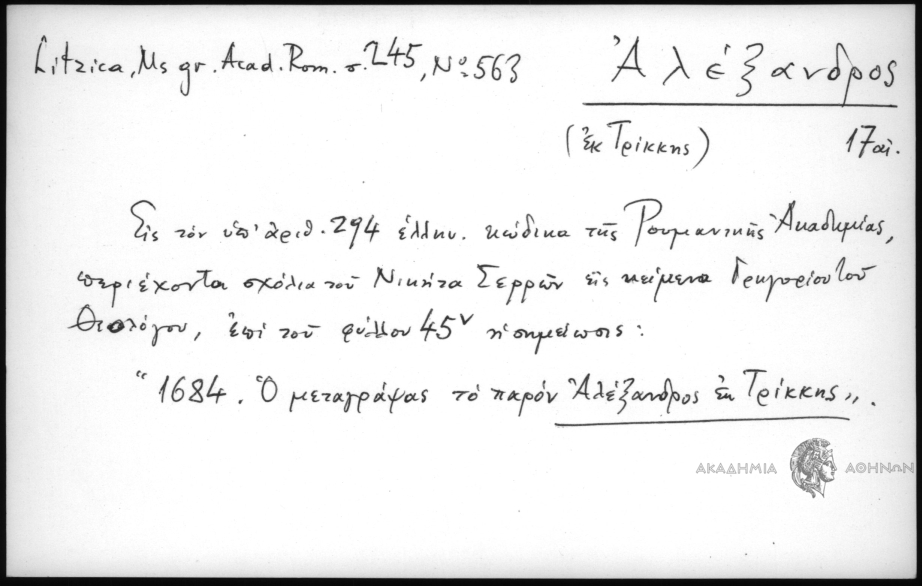 Litzica, Ms gr. Acad. Rom. σ. 245, Νο. 563
Ἀλέξανδρος
(ἐκ Τρίκκης) 17 αἰ.
Εἰς τὸν ὑπ' ἀριθ. 294 ἑλλην. κώδικα τῆς Ρουμανικῆς Ἀκαδημίας,
περιέχοντα σχόλια τοῦ Νικήτα Σερρῶν εἰς κείμενα Γρηγορίου τοῦ
Θεολόγου, ἐπὶ τοῦ φύλλου 45v ἡ σημείωσις:
"1684. Ὁ μεταγράψας τὸ παρὸν Ἀλέξανδρος ἐκ Τρίκκης".
ΑΚΑΔΗΜΙΑ ΑΘΗΝΩΝ